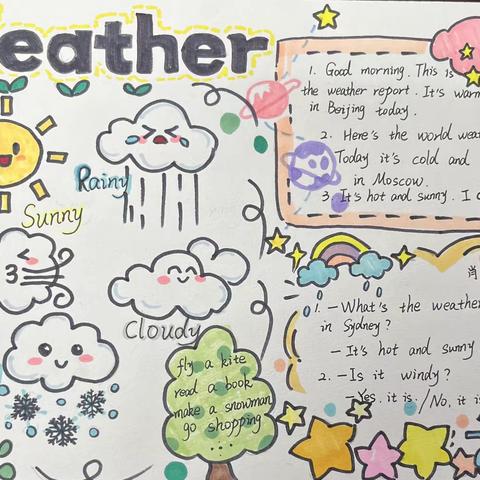 eather
Rainy
Sunny
Cloudy
fly a kite
read a book
make a snowman
go shopping
1. Good morning. This is
the weather report. It's warm
in Beijing today.
2. Here's the world wea
Today it's cold and
in Moscow.
3. It's hot and sunny. I c
1. -What's the weather
in Sydney?
-It's hot and sunny
2. -Is it windy?
-Yes. it is. / No, it is